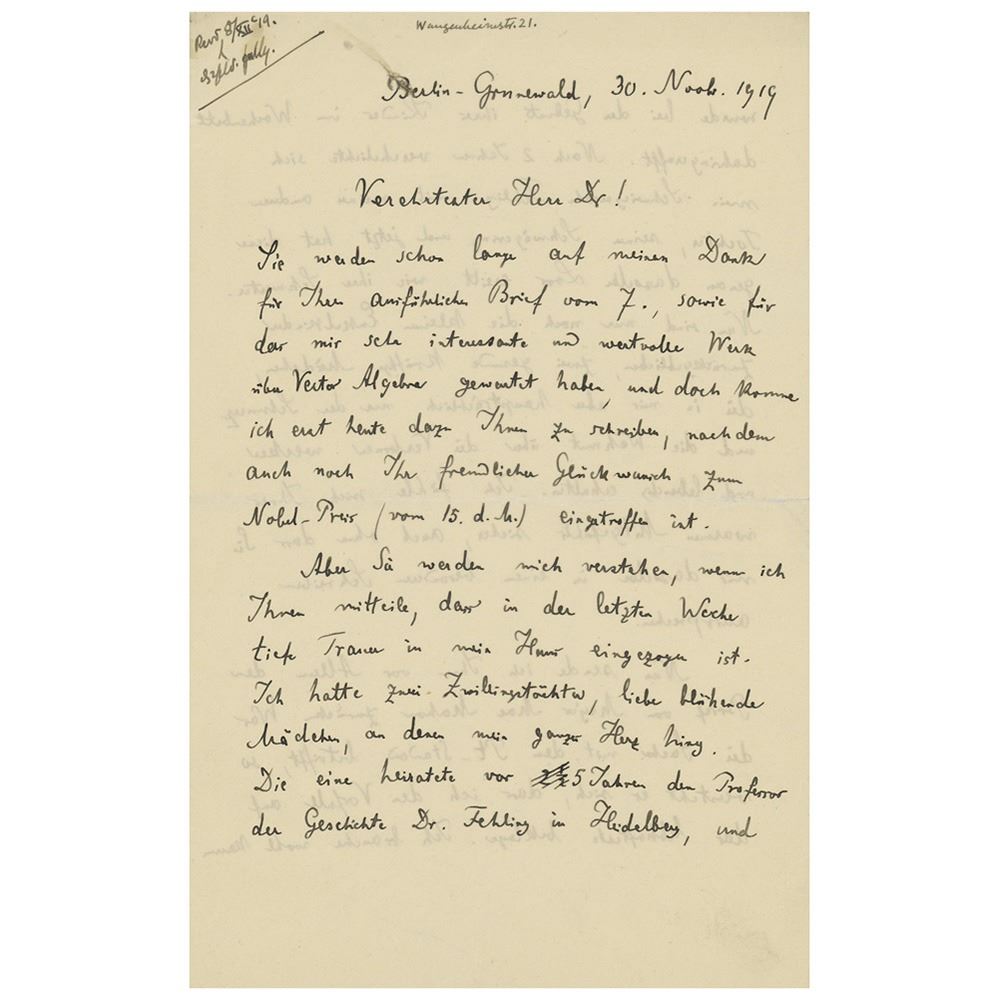 Recd 8/XII 19.
Wangenheimstr. 21.
Berlin-Grunewald, 30. Novbr. 1919
Verehrtester Herr Dr!
Sie werden schon lange auf meinen Dank
für Ihren ausführlichen Brief vom 7., sowie für
das mir sehr interessante und wertvolle Werk
über Vector Algebra gewartet haben, und doch komme
ich erst heute dazu Ihnen zu schreiben, nachdem
auch noch Ihr freundlicher Glückwunsch zum
Nobel-Preis (vom 15. d. M.) eingetroffen ist.
Aber Sie werden mich verstehen, wenn ich
Ihnen mitteile, dass in der letzten Woche
tiefe Trauer in mein Haus eingezogen ist.
Ich hatte zwei Zwillingstöchter, liebe blühende
Mädchen, an denen mein ganzes Herz hing.
Die eine heiratete vor 5 Jahren den Professor
der Geschichte Dr. Fehling in Heidelberg, und